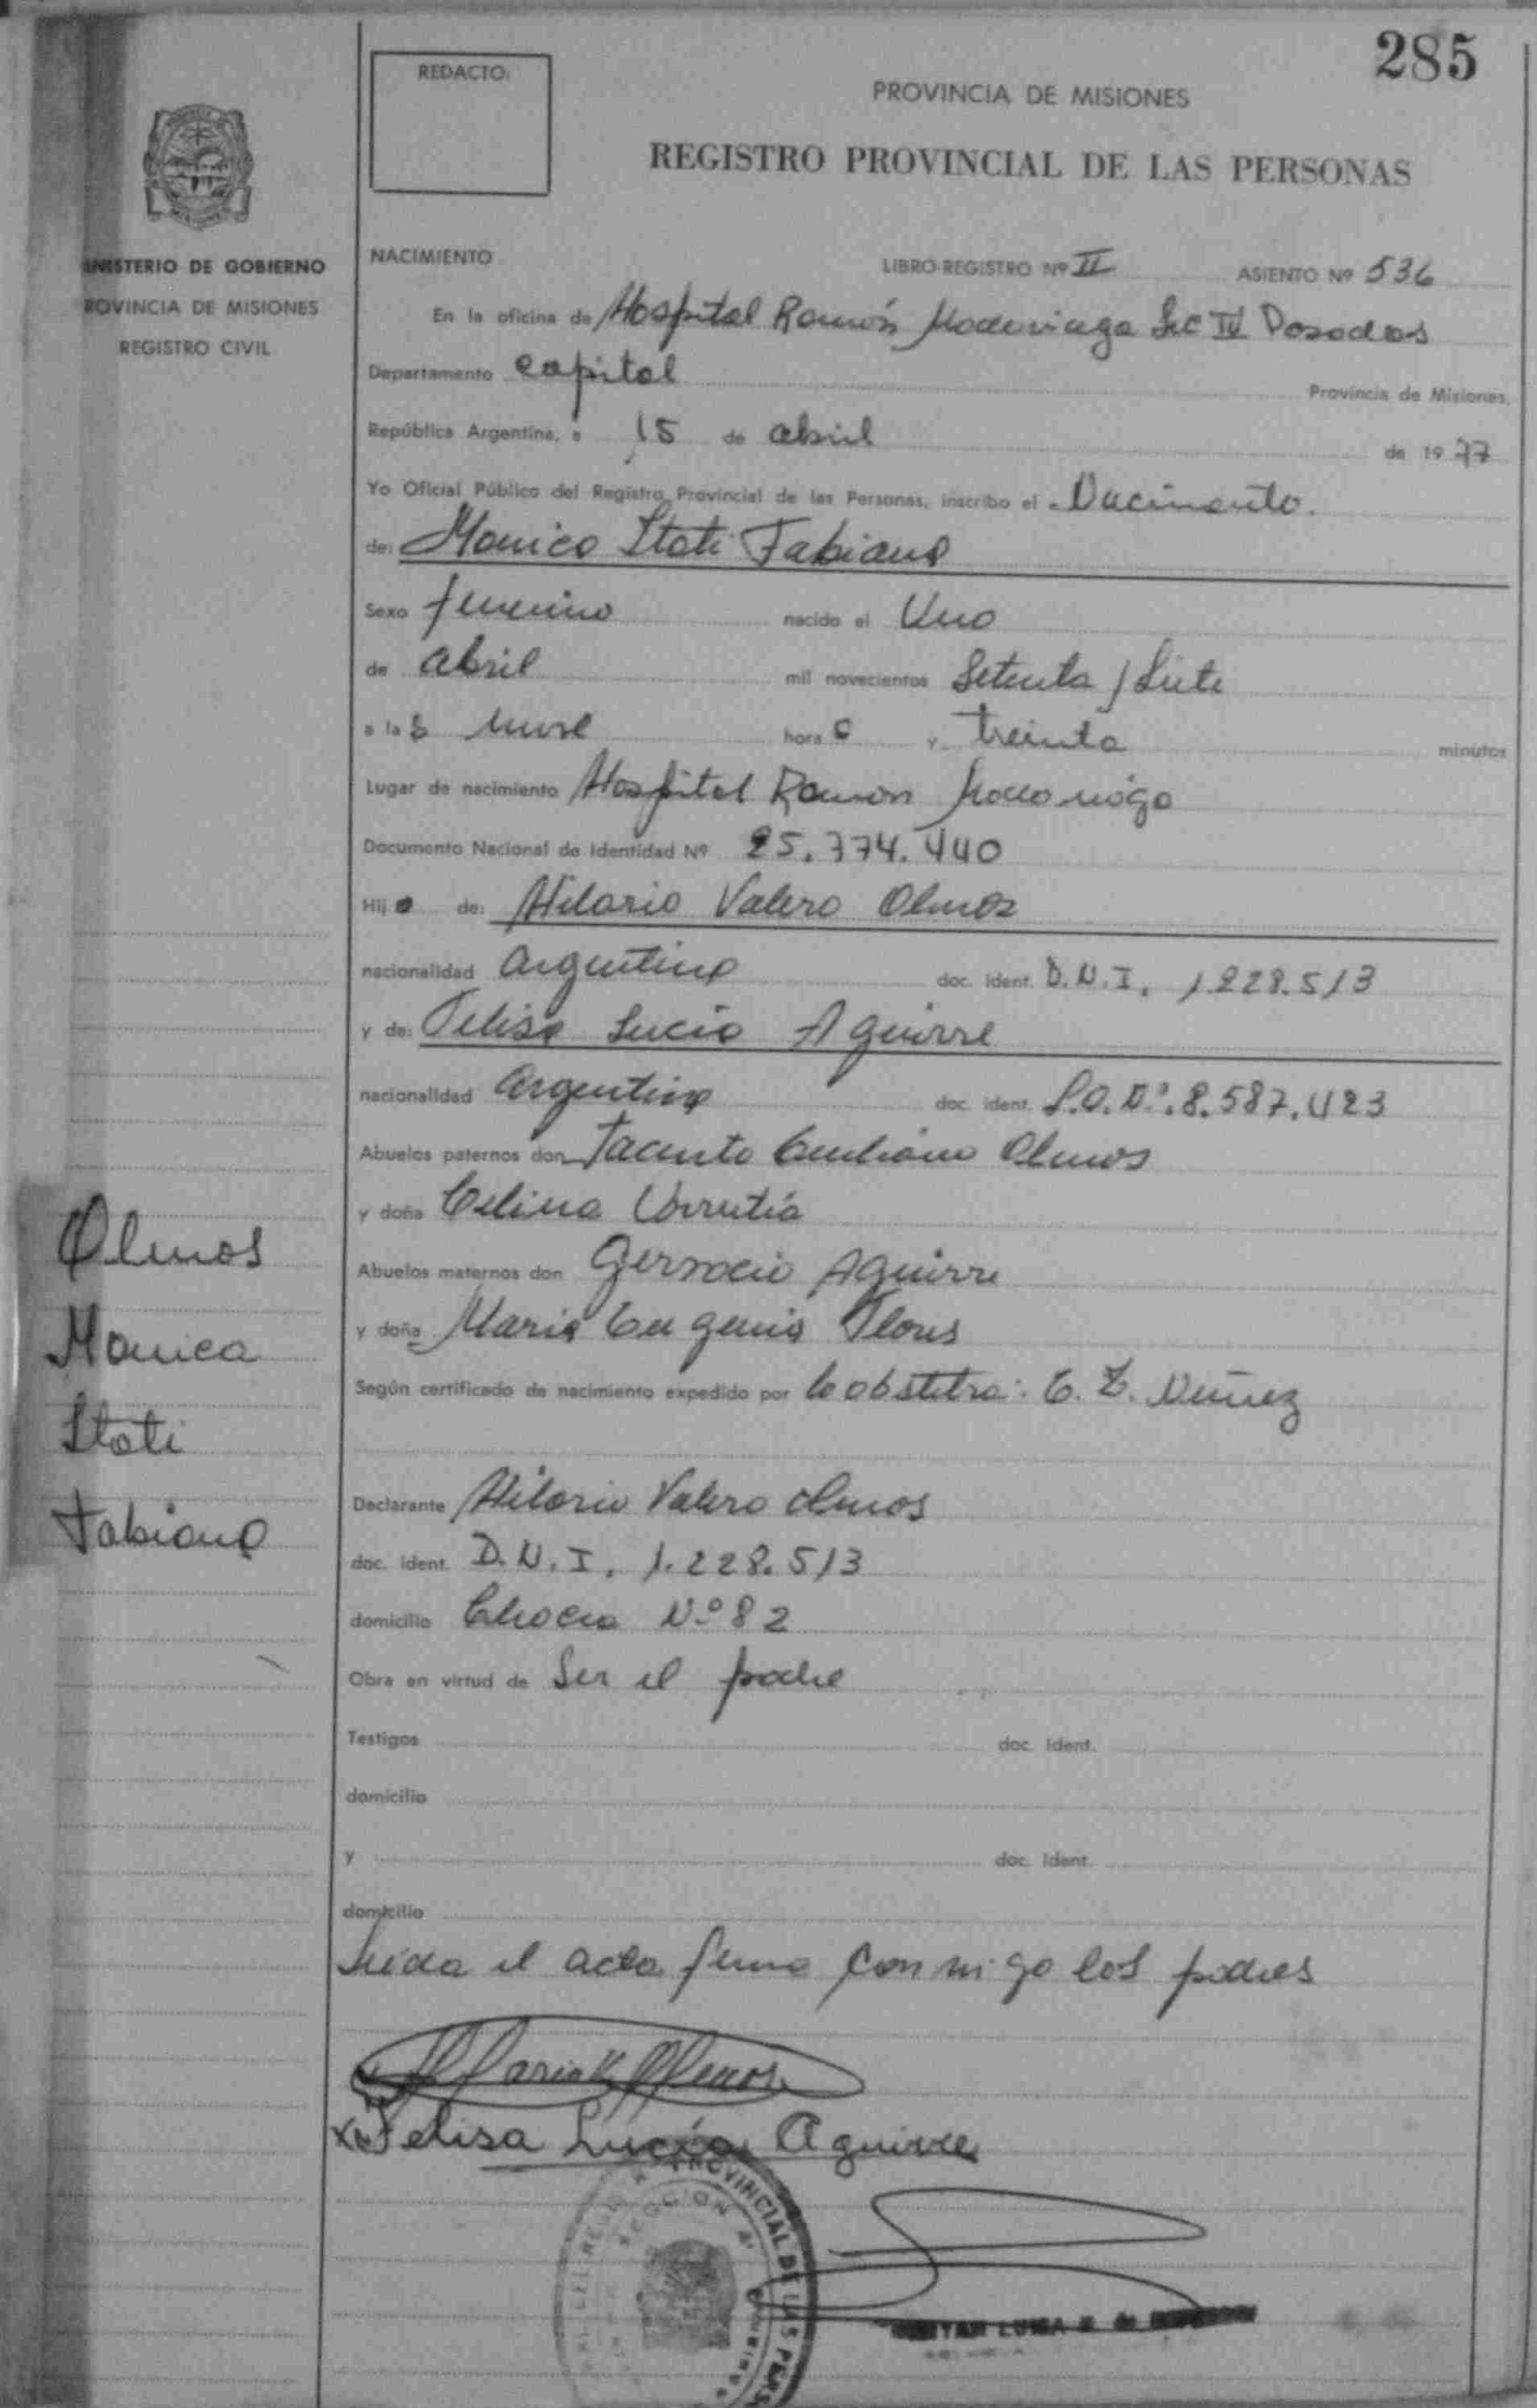 285
REDACTO:
PROVINCIA DE MISIONES
REGISTRO PROVINCIAL DE LAS PERSONAS
MINISTERIO DE GOBIERNO
PROVINCIA DE MISIONES
REGISTRO CIVIL
NACIMIENTO LIBRO-REGISTRO Nº II ASIENTO Nº 536
En la oficina de Hospital Ramón Madariaga Sec IV Posadas
Departamento Capital Provincia de Misiones,
República Argentina, a 15 de abril de 1977
Yo Oficial Público del Registro Provincial de las Personas, inscribo el Nacimiento.
de: Monica Stati Fabiana
Sexo femenino nacido el Uno
de abril mil novecientos Setenta / Siete
a las nueve hora y treinta minutos
Lugar de nacimiento Hospital Ramon
Documento Nacional de Identidad Nº 25.774.440
Hija de: Hilario Valero Olmos
nacionalidad argentina doc. ident. D.N.I. 1.228.513
y de: Felisa Lucia Aguirre
nacionalidad argentina doc. ident. Nº. 8.587.423
Abuelos paternos don Jacinto Emiliano Olmos
y doña Celina Urrutia
Abuelos maternos don Gervacio Aguirre
y doña Maria Eugenia Flores
Según certificado de nacimiento expedido por la obstetra: E. Z. Nuñez
Declarante Hilario Valero Olmos
doc. ident. D.N.I. 1.228.513
domicilio Chacra Nº 82
Obra en virtud de Ser el padre
Testigos doc. ident.
domicilio
y doc. ident.
domicilio
Leida el acta firma conmigo los padres
Olmos
Felisa Lucía Aguirre
PROVINCIAL DE LAS PERS
SECCION 4ª
Olmos
Monica
Stati
Fabiana